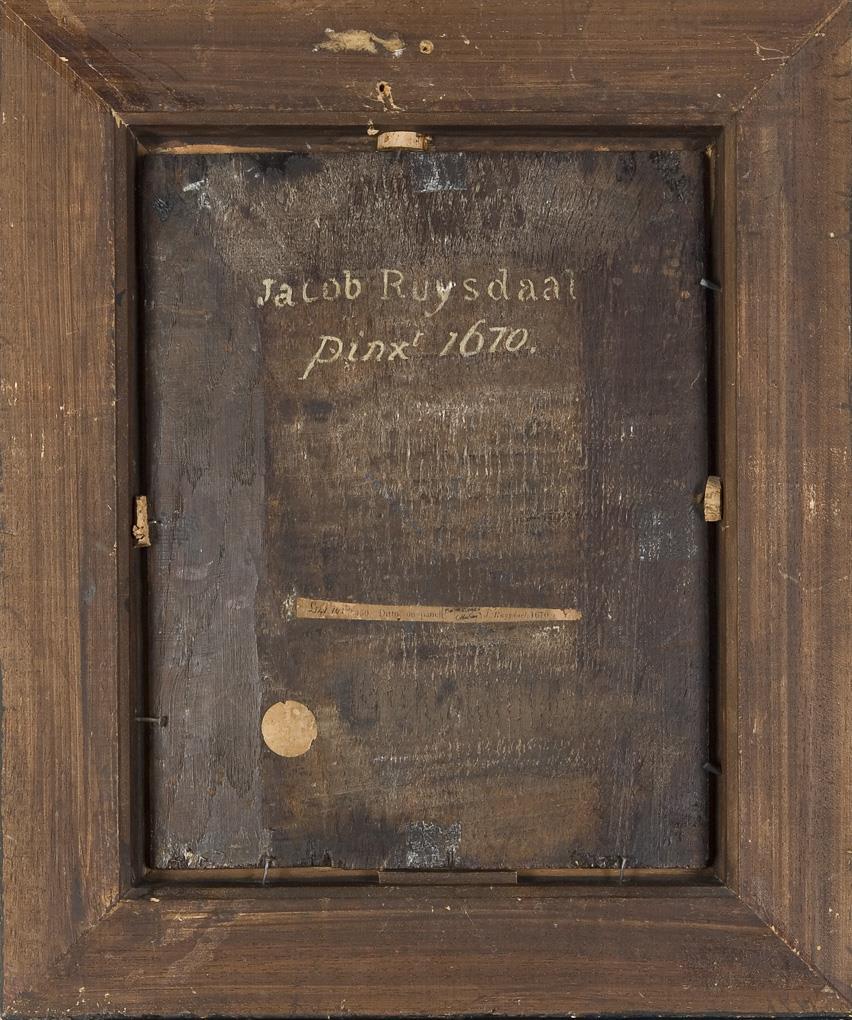 Jacob Ruysdaal
pinxt 1670.
Ditto, on panel J. Ruysdael, 1670